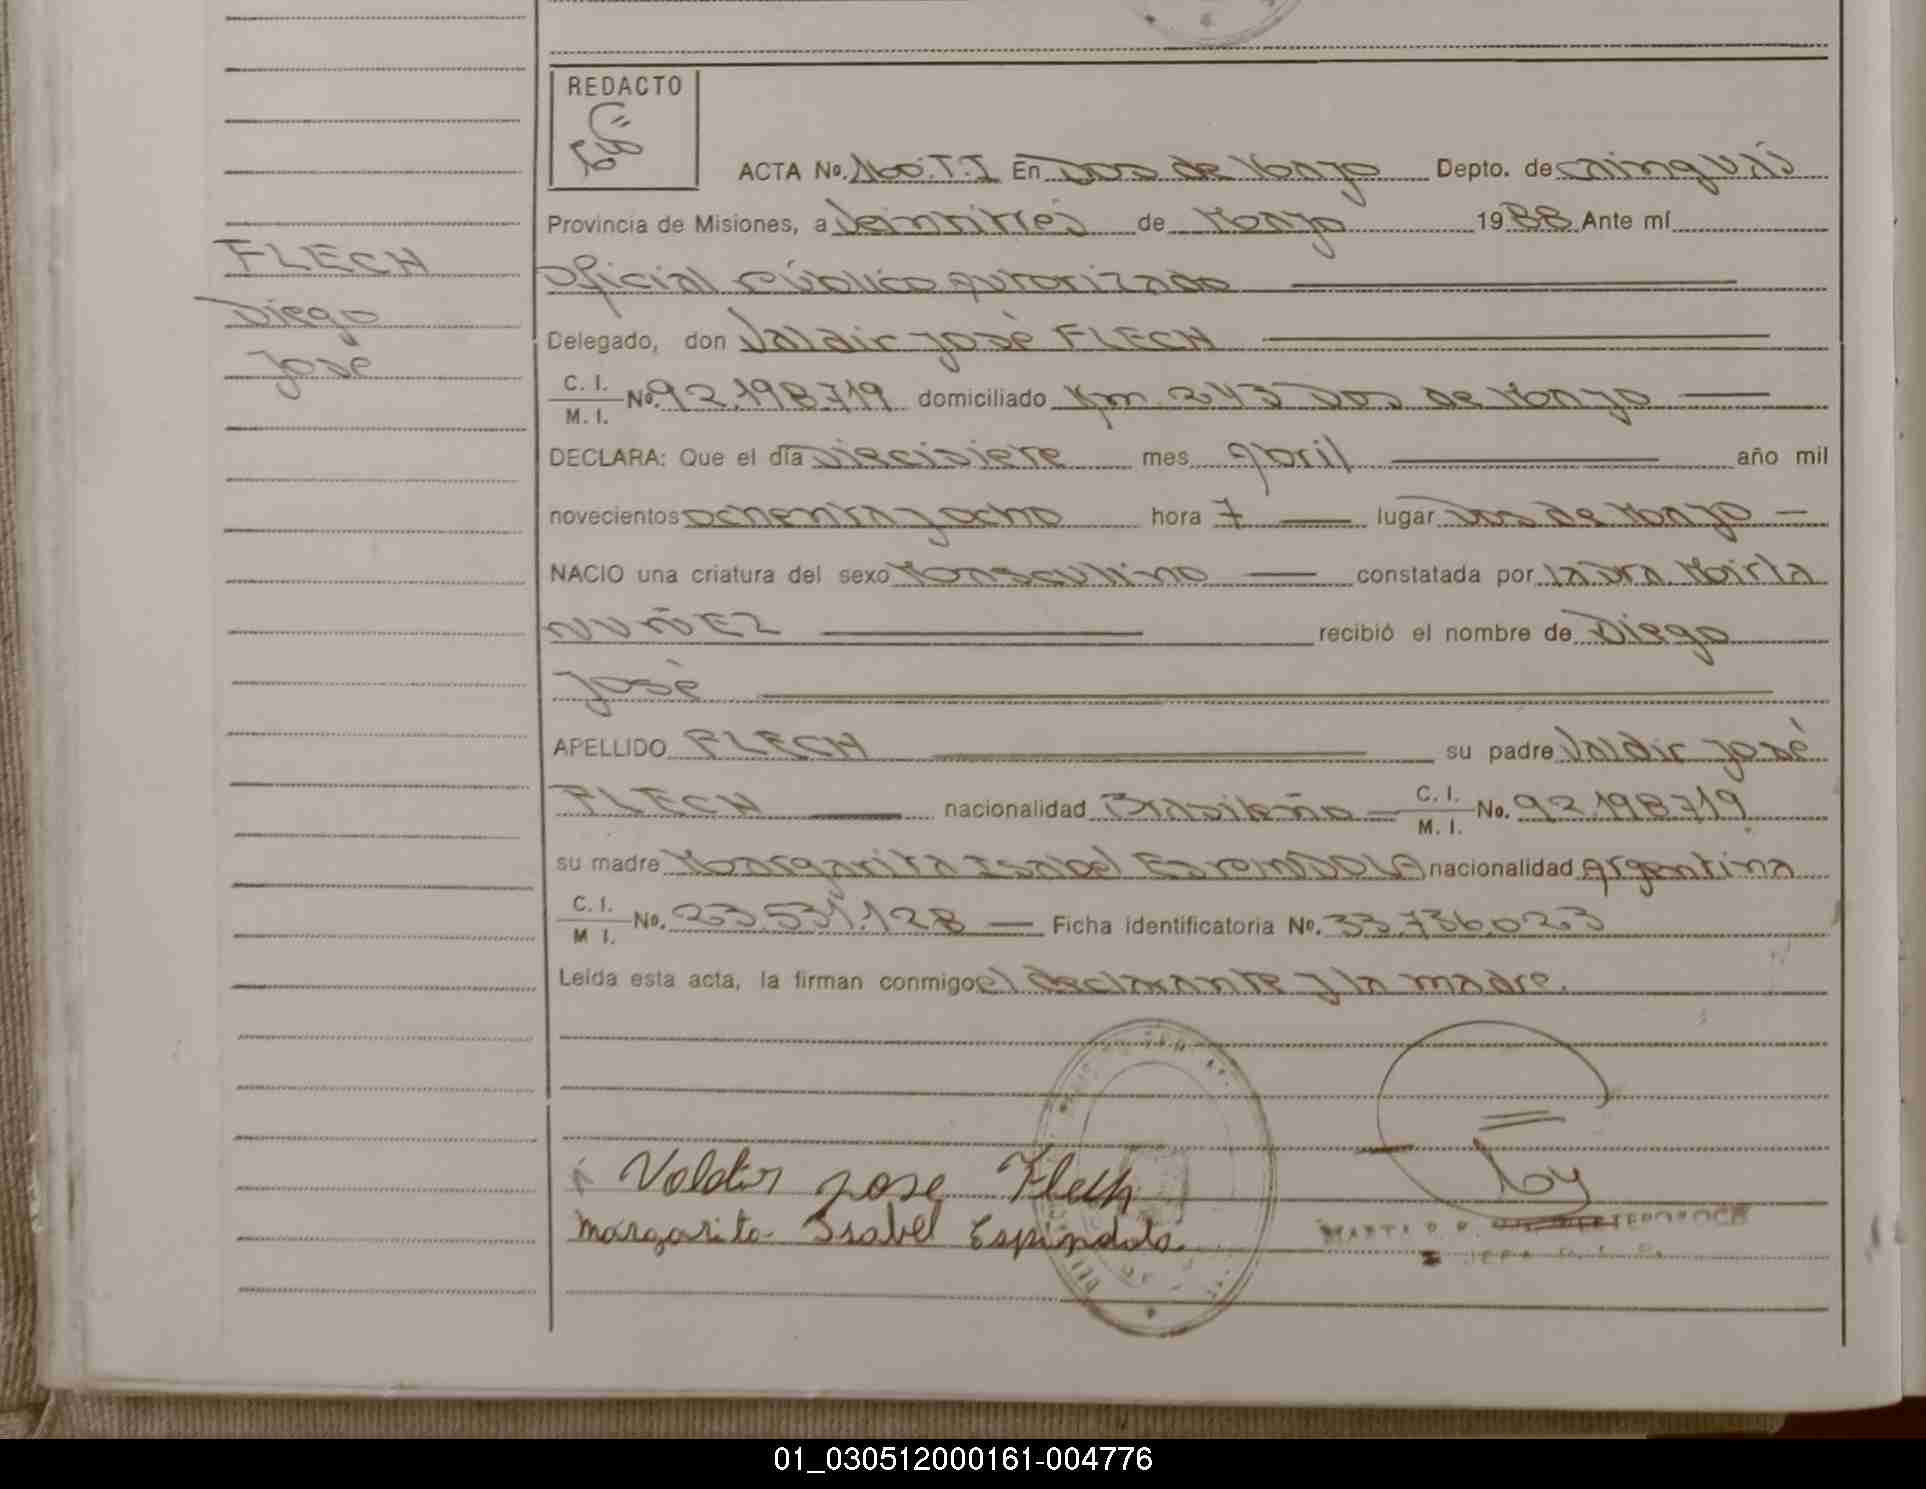 REDACTO
ACTA No. 160.T.I En Dos de Mayo Depto. de Cainguás
Provincia de Misiones, a Veintitrés de Mayo 1988 Ante mí
FLECH
Oficial Público autorizado
Diego
Delegado, don Valdir José FLECH
José
C. I.
M. I. No. 92.198.719 domiciliado Km 243 Dos de Mayo
DECLARA: Que el día Diecisiete mes Abril año mil
novecientos ochenta y ocho hora 7 lugar Dos de Mayo
NACIO una criatura del sexo Masculino constatada por Laura Mirta
NUÑEZ recibió el nombre de Diego
José
APELLIDO FLECH su padre Valdir José
FLECH nacionalidad Brasileño C. I.
M. I. No. 92.198.719
su madre Margarita Isabel ESPINDOLA nacionalidad Argentina
C. I.
M I. No. 23.531.128 Ficha identificatoria No. 33.736.023
Leída esta acta, la firman conmigo el declarante y la madre.
Valdir Jose Flech
Margarita Isabel Espindola
01_030512000161-004776